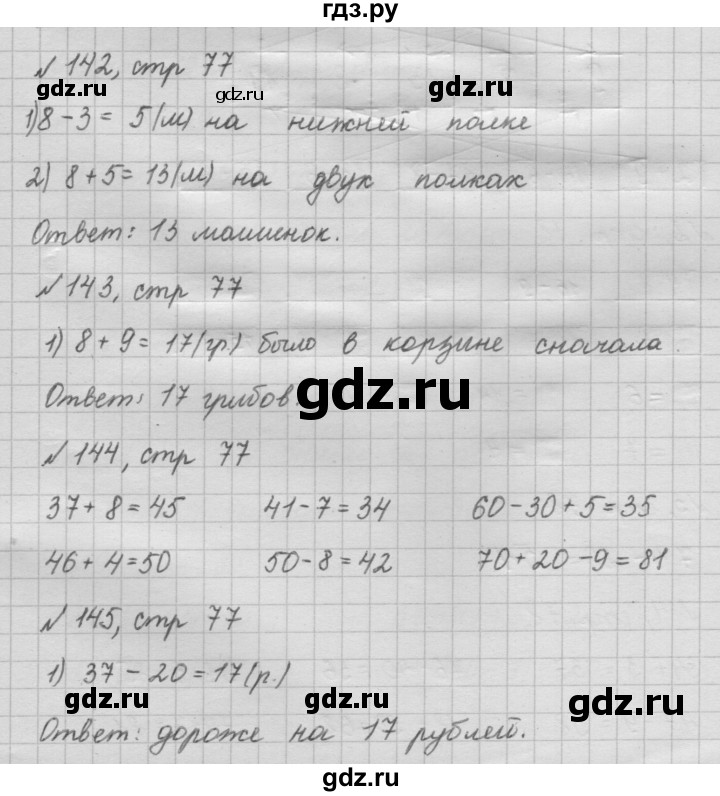 гдз.ру
№ 142, стр 77
gdz.ru gdz.ru gdz.ru
1) 8 - 3 = 5 (м) на нижней полке
2) 8 + 5 = 13 (м) на двух полках
Ответ: 13 машинок.
№ 143, стр 77
1) 8 + 9 = 17 (гр.) было в корзине сначала.
Ответ: 17 грибов.
gdz.ru
№ 144, стр 77
37 + 8 = 45 41 - 7 = 34 60 - 30 + 5 = 35
46 + 4 = 50 50 - 8 = 42 70 + 20 - 9 = 81
№ 145, стр 77
1) 37 - 20 = 17 (р.)
gdz.ru gdz.ru gdz.ru
Ответ: дороже на 17 рублей.
gdz.ru